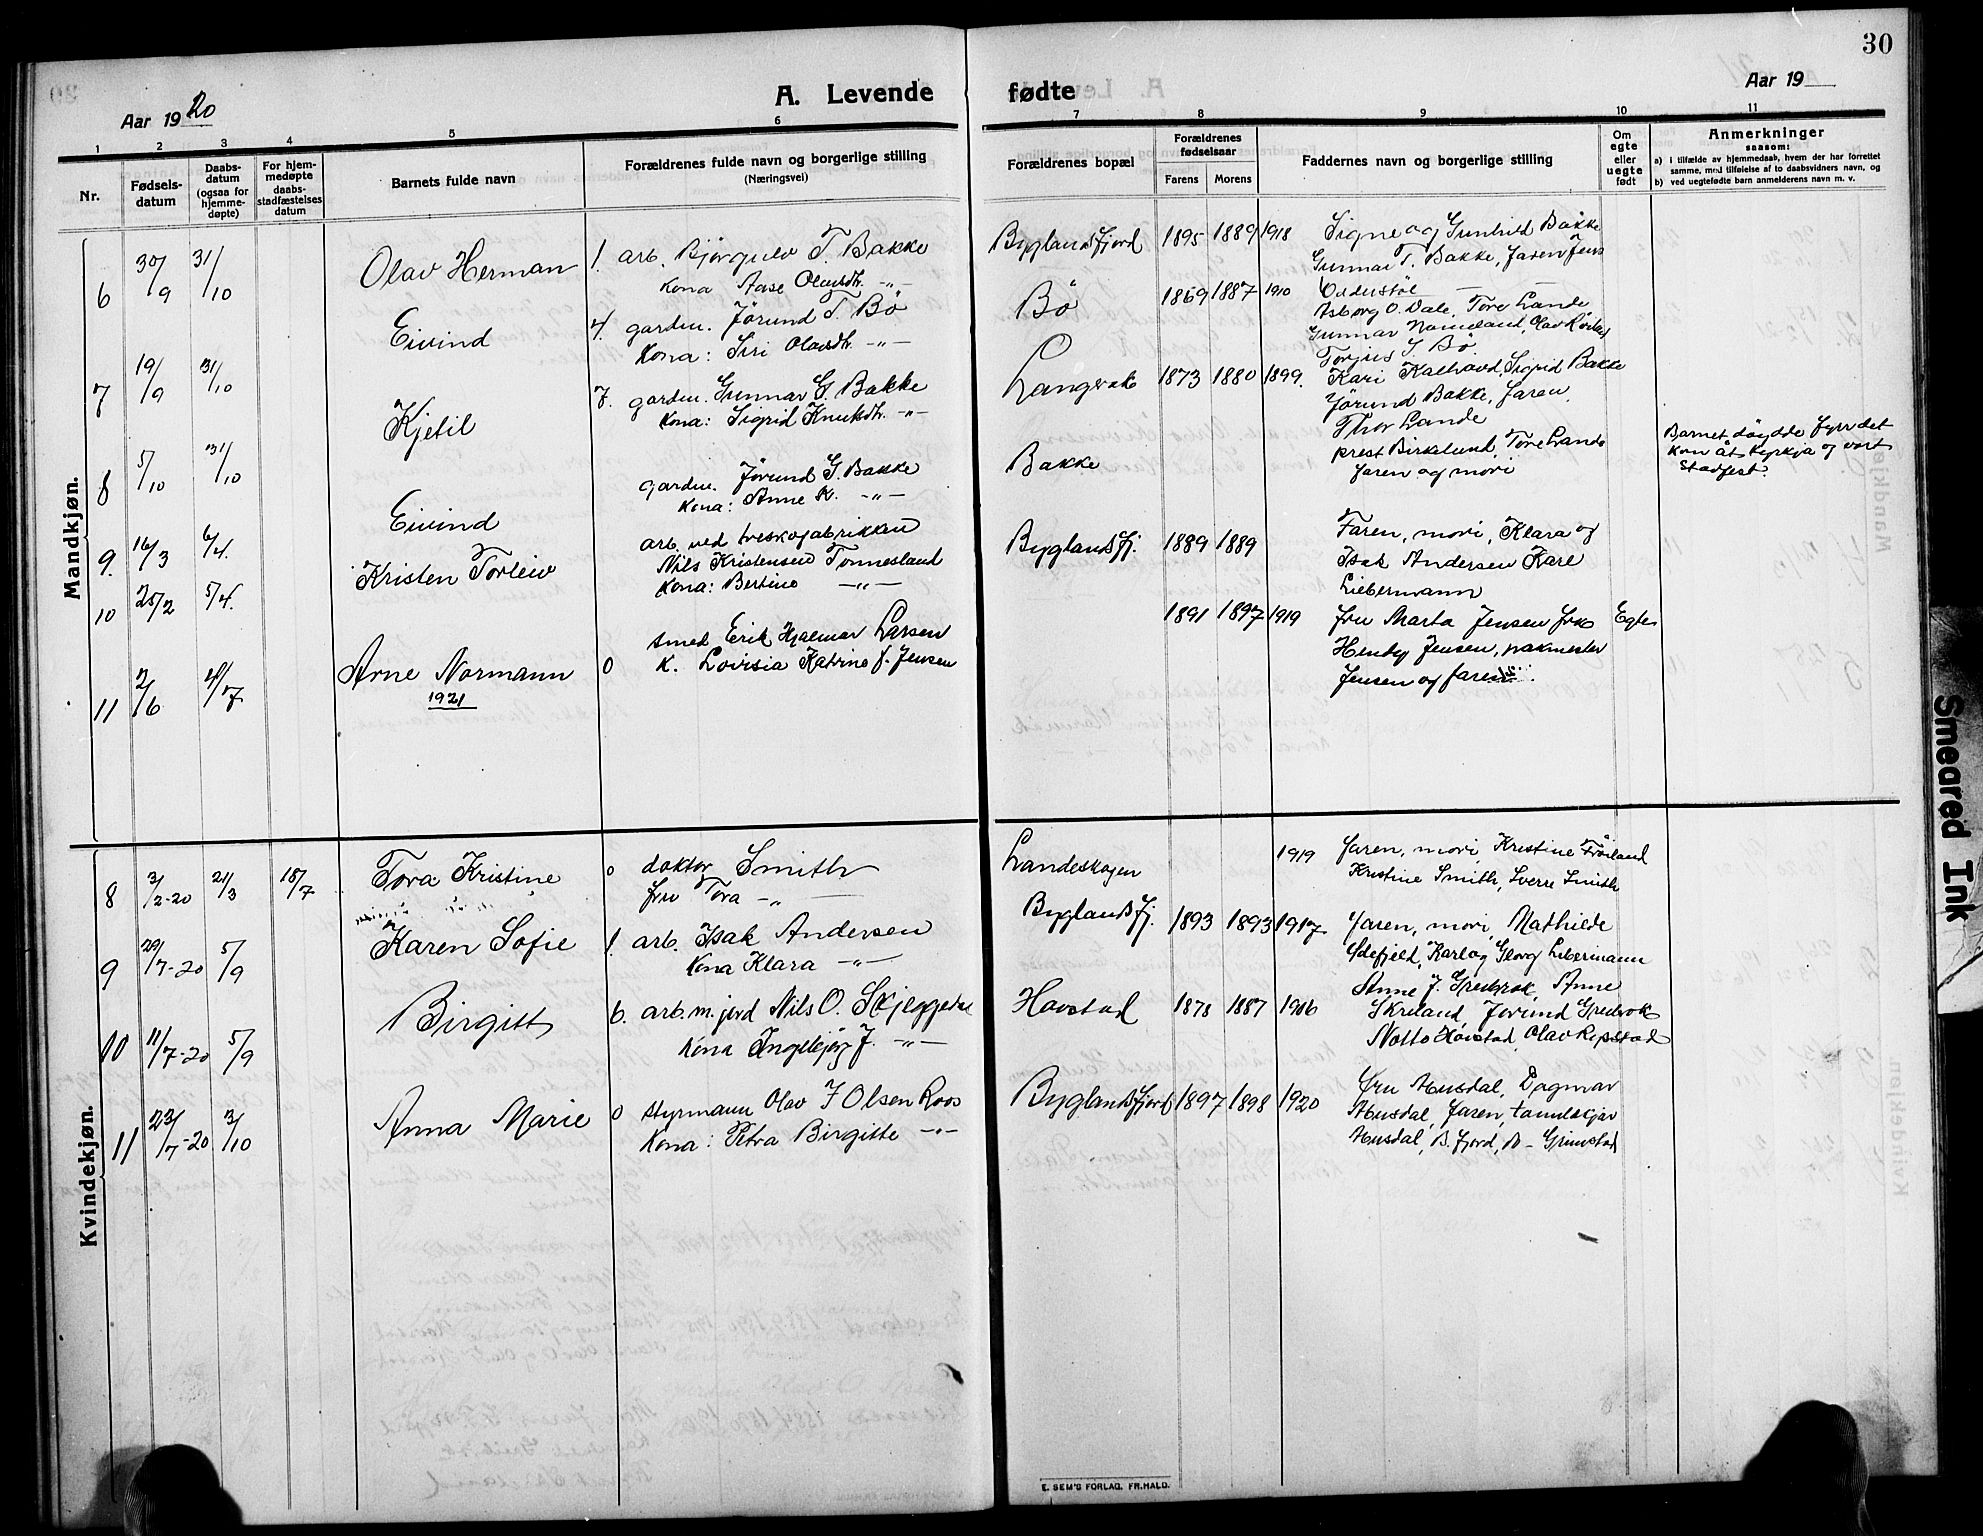 30
Aar 1920
A. Levende fødte
Aar 19
1 2 3 4 5 6 7 8 9 10 11
Nr.
Fødsels-
datum
Daabs-
datum
(ogsaa for
hjemme-
døpte)
For hjem-
medøpte
daabs-
stadfæstelses
datum
Barnets fulde navn
Forældrenes fulde navn og borgerlige stilling
(Næringsvei)
Forældrenes bopæl
Forældrenes
fødselsaar
Farens Morens
Faddernes navn og borgerlige stilling
Om
egte
eller
uegte
født
Anmerkninger
saasom:
a) i tilfælde av hjemmedaab, hvem der har forrettet
samme, med tilføielse af to daabsvidners navn, og
b) ved uegtefødte barn anmelderens navn m. v.
Mandkjøn.
6 30/9 31/10 Olav Herman 1. arb. Bjørgulv T. Bakke
Kona Aase Olavsdtr. -"-
Byglandsfjord 1895 1889 1918 Signe og Gunhild Bakke
Gunnar T. Bakke, faren Jens
7 19/9 31/10 Eivind 4. gardm. Jørund T. Bø
Kona: Siri Olavsdtr. -"-
Bø 1869 1887 1910
Asborg O. Dale, Tore Lande,
Gunnar Nomeland, Olav
Torjus J. Bø
8 5/10 31/10 Kjetil 7. gardm. Gunnar G. Bakke
Kona: Sigrid Knutsdtr. -"-
Langerak 1873 1880 1899. Kari Kalhovd, Sigrid Bakke
Jørund Bakke, faren,
Thor Lande
Eivind
gardm. Jørund G. Bakke
Kona: Anne K. -"-
Bakke
prest Birkelund, Tore Lande
faren og mori
Barnet døydde fyrr det
kom åt kyrkja og vart
Stadfest.
9. 16/3 6/4. Kristen Torleiv
arb. ved treskofabrikken
Nils Kristensen Tønnesland
Kona: Bertine -"-
Byglandsfj. 1889 1889
Faren, mori, Klara og
Isak Andersen Karl
Liebermann
10 25/2 5/4.
smed Erik Hjalmar Larsen
K. Lovisia Katrine f. Jensen
1891 1897 1919 fru Marta Jensen frk
Hendy Jensen, pakmester
Jensen og faren
Egte
11 2/6 4/7 Arne Normann 0
1921
Kvindekjøn.
8 3/2-20 21/3 18/7 Tora Kristine 0 doktor Smith
fru Tora -"-
Landeskogen 1919 Faren, mori, Kristine Frøiland
Kristine Smith, Sverre Smith
9 29/7-20 5/9 Karen Sofie 1. arb. Isak Andersen
Kona Klara -"-
Byglandsfj. 1893 1893 1917 Faren, mori, Mathilde
Idefjeld, Karl og Georg Libermann
10 11/7-20 5/9 Birgitt 6. arb. m. jord Nils O. Skjeggedal
Kona Ingebjørg J. -"-
Havstad 1878 1887 1906
Anne J. Grebrok, Anne
Skreland Jorund Grebrok
Notto Havstad, Olav Repstad
11 23/7-20 3/10 Anna Marie 0 styrmann Olav J Olsen Roos
Kona: Petra Birgitte -"-
Byglandsfjord 1897 1898 1920 Fru Ausdal, Dagmar
Ausdal, faren, tannlækjar
Ausdal, B. fjord, B - Grimstad
E. SEM'S FORLAG, FR.HALD.
Smeared Ink